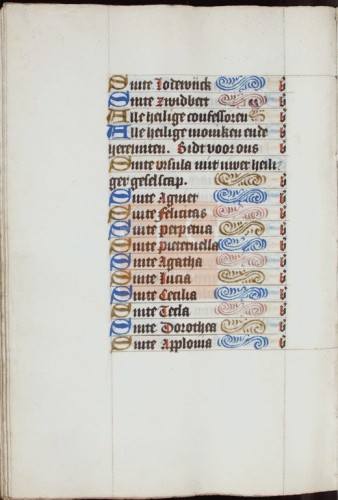 Sinte Jodewijck b
Sinte zwidbert b
Alle heilige confessoren b
Alle heilige moniken ende
heremiten. Bidt voor ons b
Sinte vrsula mit uwer heili
ger geselscap. b
Sinte Agniet b
Sinte Felicitas b
Sinte perpetua b
Sinte pieternella b
Sinte Agatha b
Sinte Lucia b
Sinte Cecilia b
Sinte Tecla b
Sinte Dorothea b
Sinte Appolonia b